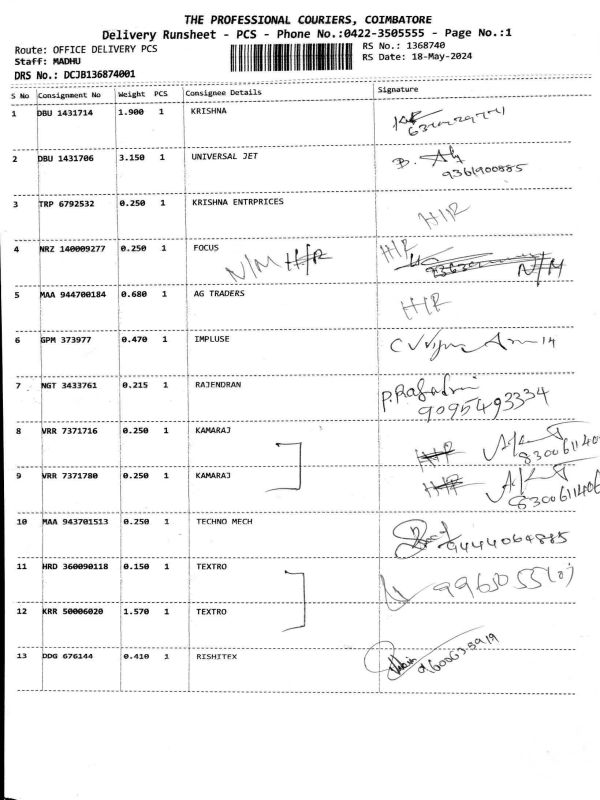 THE PROFESSIONAL COURIERS, COIMBATORE
Delivery Runsheet - PCS - Phone No.:0422-3505555 - Page No.:1
Route: OFFICE DELIVERY PCS
RS No.: 1368740
Staff: MADHU
RS Date: 18-May-2024
DRS No.: DCJB136874001
S No Consignment No Weight PCS Consignee Details Signature
1 DBU 1431714 1.900 1 KRISHNA
2 DBU 1431706 3.150 1 UNIVERSAL JET B.
9361900885
3 TRP 6792532 0.250 1 KRISHNA ENTRPRICES H/R
4 NRZ 140009277 0.250 1 FOCUS H/R
N/M H/R N/M
5 MAA 944700184 0.680 1 AG TRADERS H/R
6 GPM 373977 0.470 1 IMPLUSE
7 NGT 3433761 0.215 1 RAJENDRAN
9095493334
8 VRR 7371716 0.250 1 KAMARAJ H/R
8300611406
9 VRR 7371780 0.250 1 KAMARAJ H/R
8300611406
10 MAA 943701513 0.250 1 TECHNO MECH 9444064885
11 HRD 360090118 0.150 1 TEXTRO
12 KRR 50006020 1.570 1 TEXTRO
13 DDG 676144 0.410 1 RISHITEX